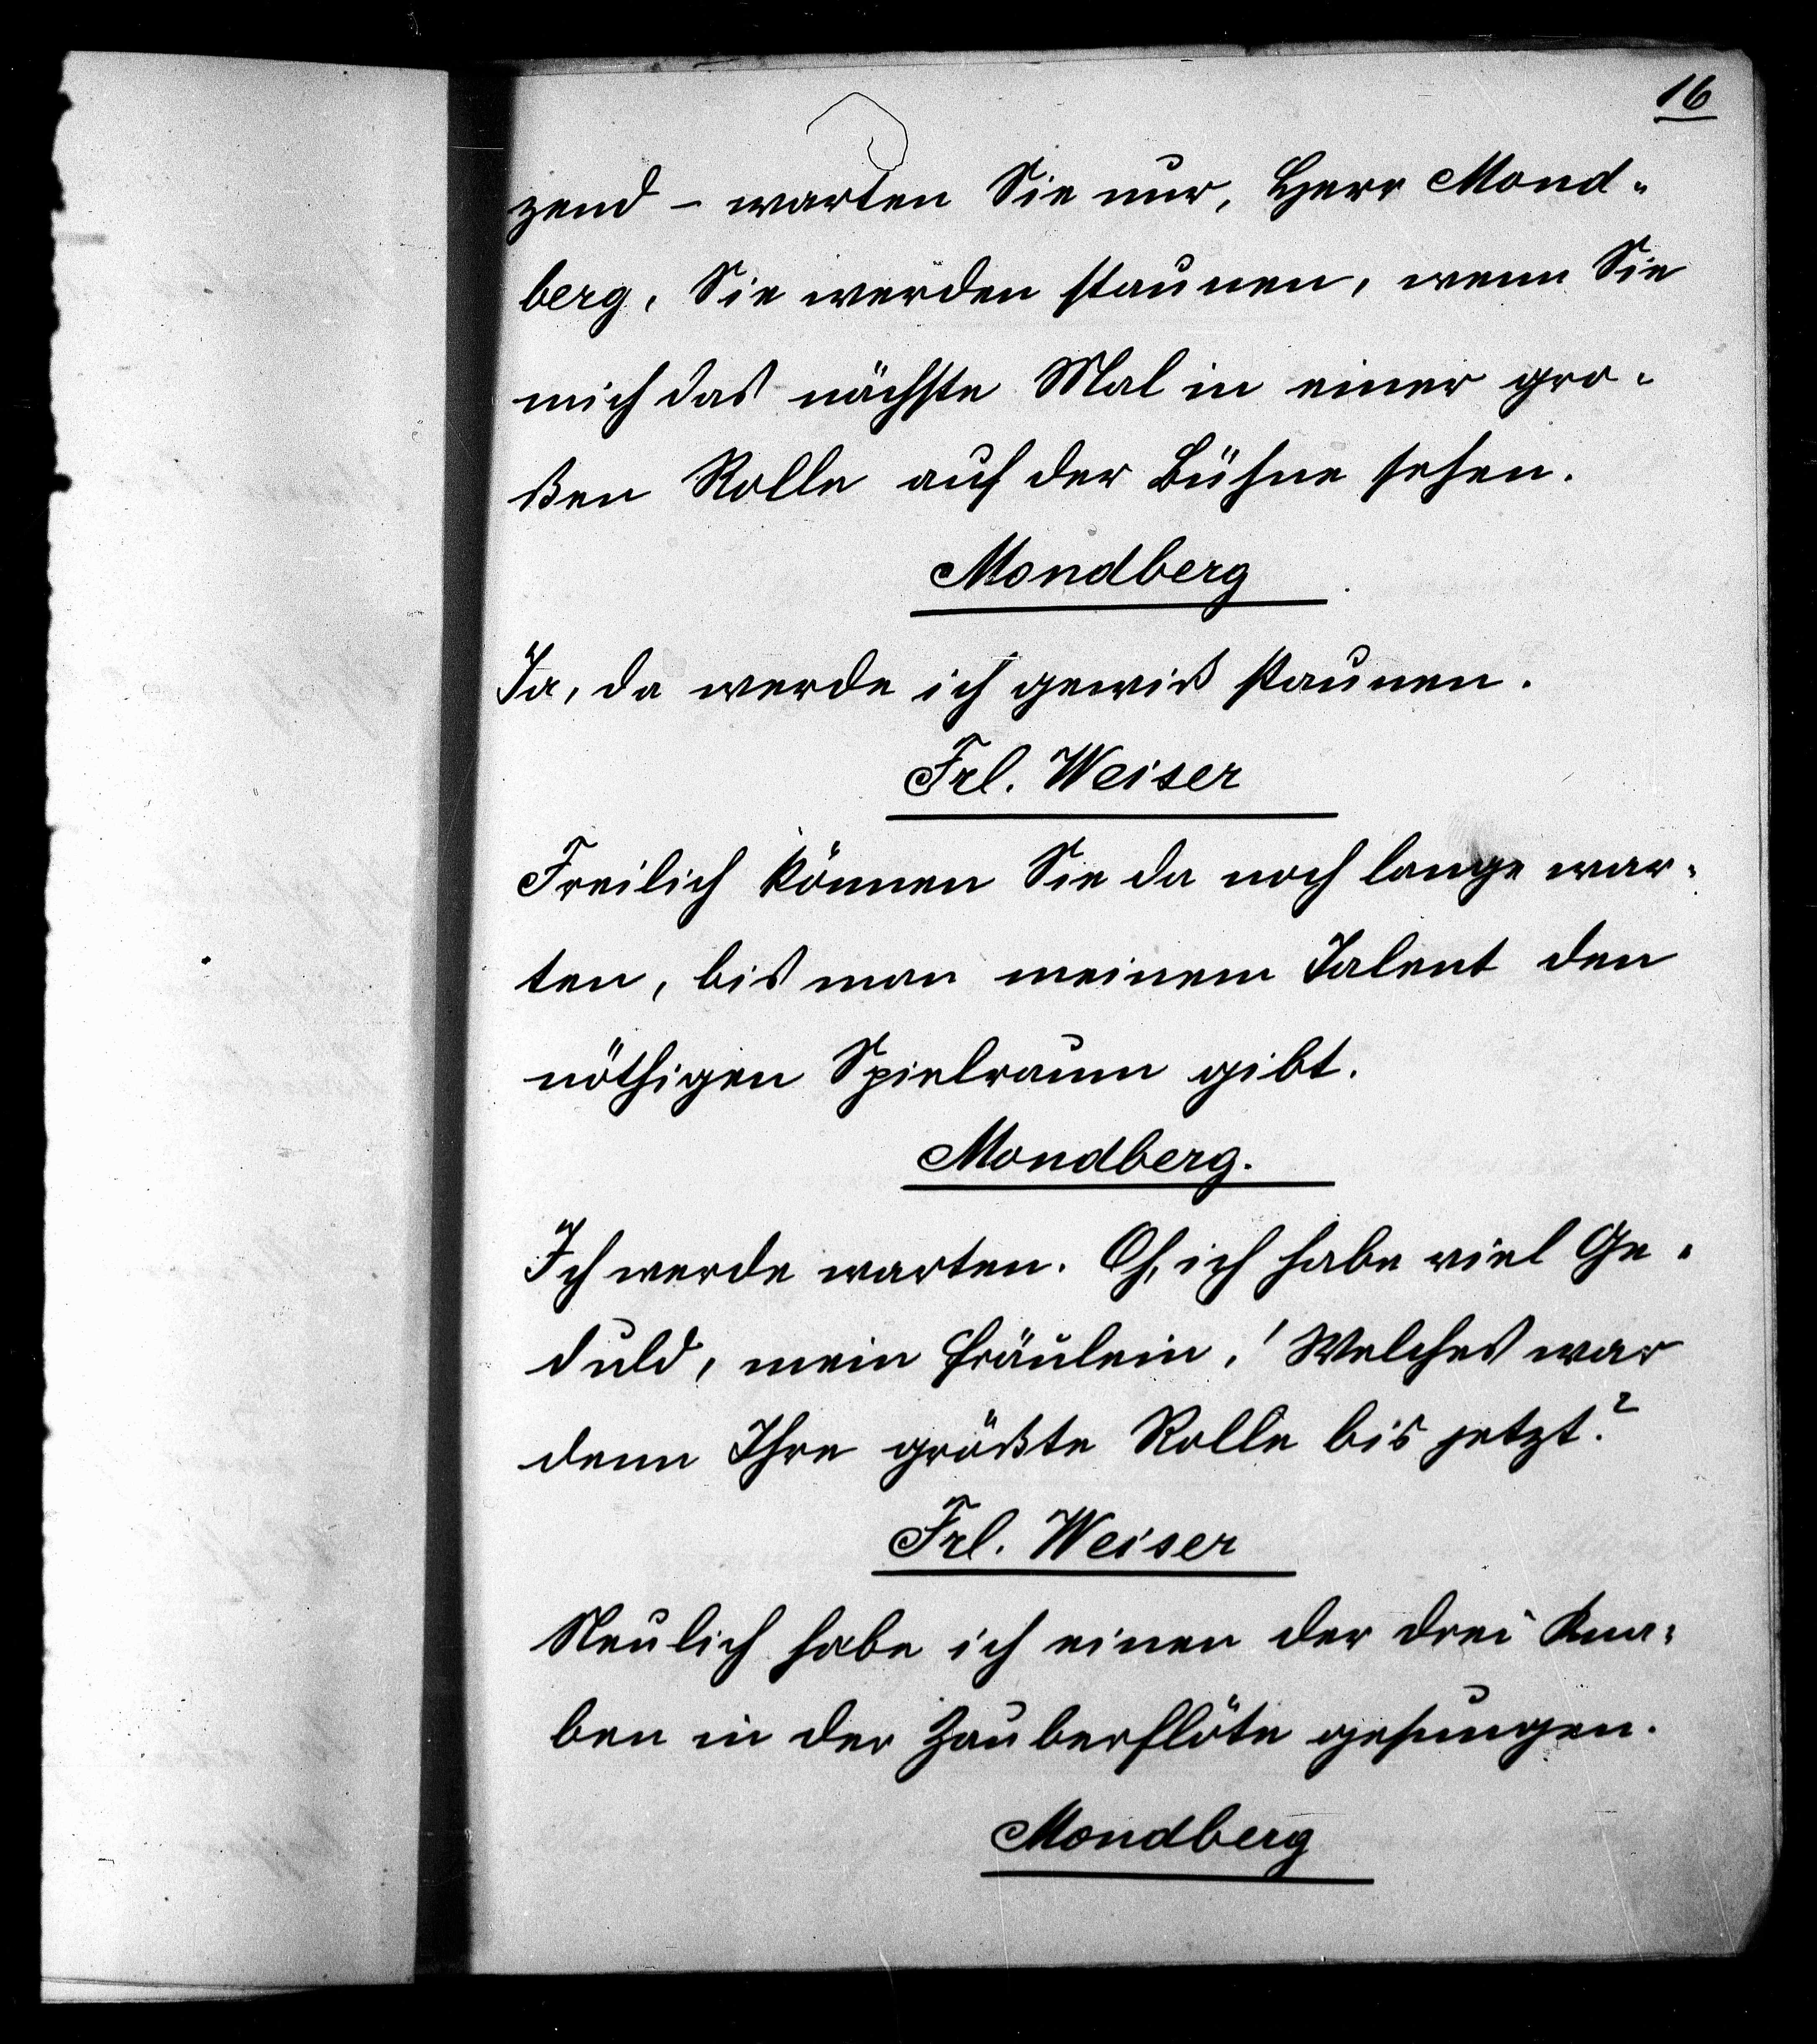 16
zend - warten Sie nur, Herr Mond-
berg, Sie werden staunen, wenn Sie
mich das nächste Mal in einer gro-
ßen Rolle auf der Bühne sehen.
Mondberg
Ja, da werde ich gewiß staunen.
Frl. Weiser
Freilich können Sie da noch lange war-
ten, bis man meinem Talent den
nöthigen Spielraum gibt.
Mondberg.
Ich werde warten. Oh, ich habe viel Ge-
duld, mein Fräulein! Welches war
denn Ihre größte Rolle bis jetzt?
Frl. Weiser
Neulich habe ich einen der drei Kna-
ben in der Zauberflöte gesungen.
Mondberg